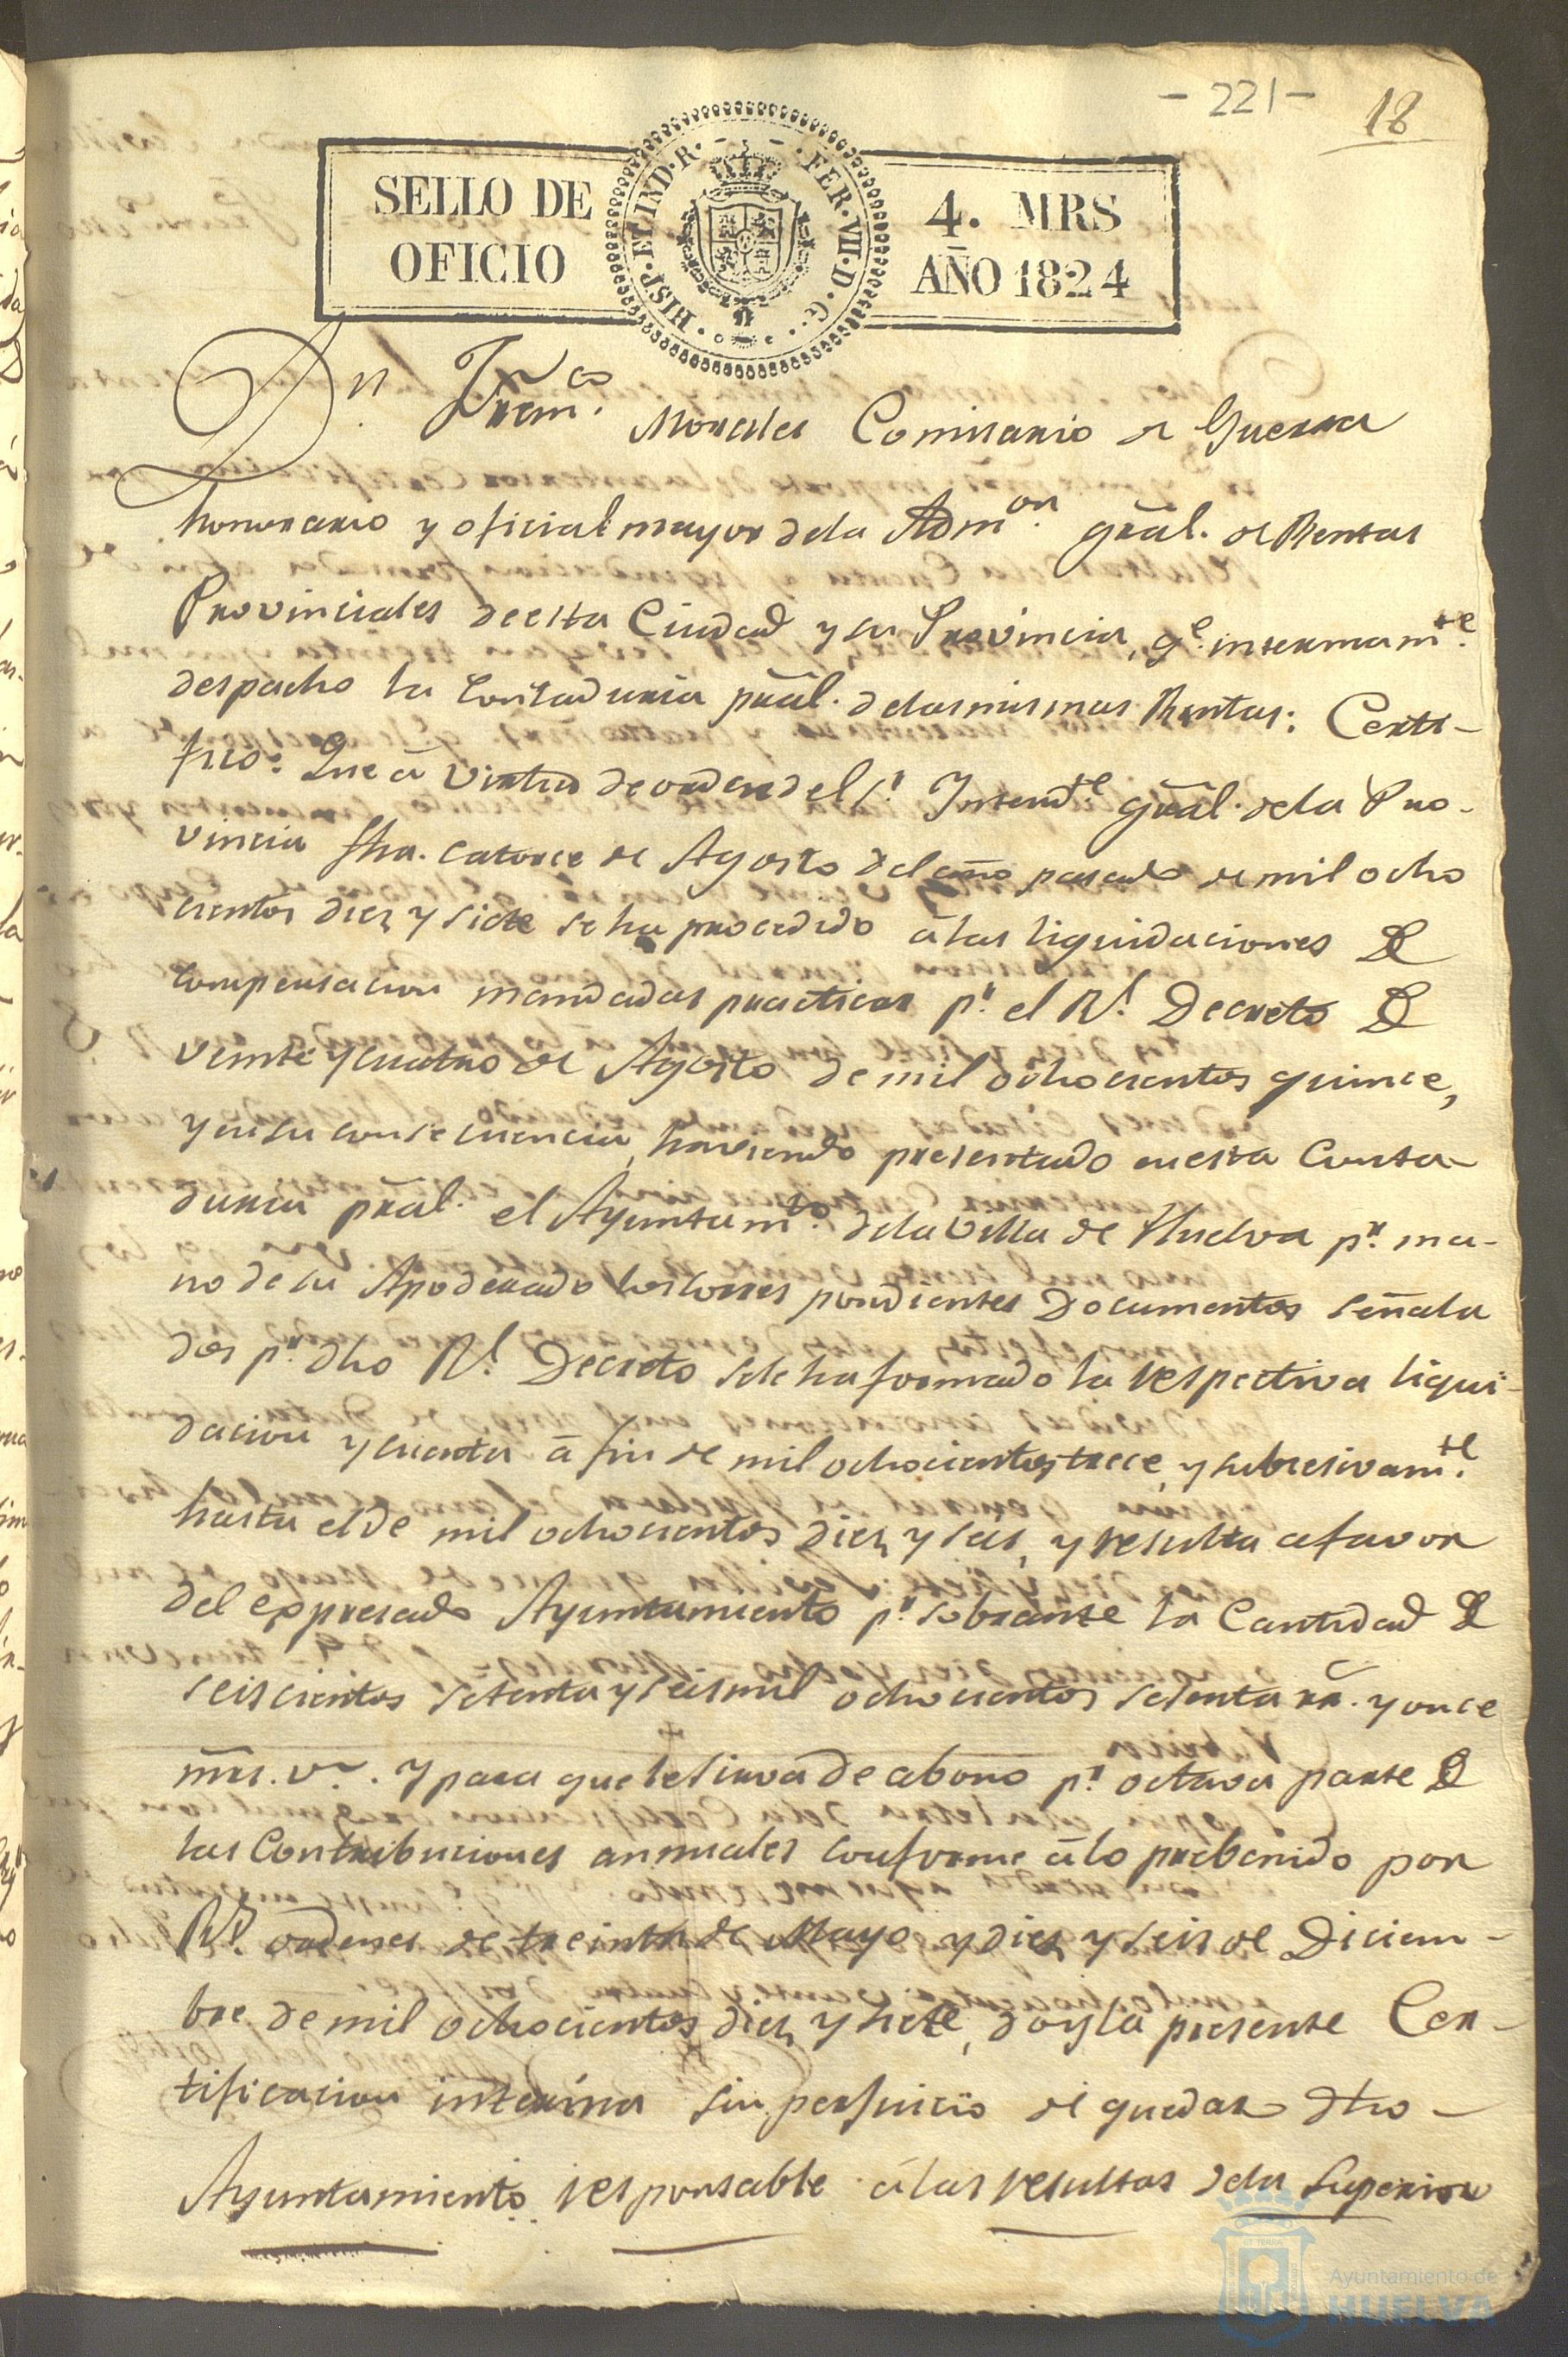 - 221 - 18
SELLO DE OFICIO
HISP. ET IND. R. FER. VII. D. G.
4. MRS
AÑO 1824
Dn. Franco. Morales Comisario de Guerra
honorario y oficial mayor dela Admon. gral. de Rentas
Provinciales deesta Ciudad y su Provincia, qe. interinamte.
despacho la Contaduria pral. delasmismas Rentas: Certi-
fico: Que á virtud de orden del Sr. Intendte. gral. dela Pro-
vincia fha. catorce de Agosto del año pasado de mil ocho
cientos diez y siete seha procedido álas liquidaciones de
compensacion mandadas practicar pr. el Rl. Decreto de
veinte y cuatro de Agosto de mil ochocientos quince,
y ensu consecuencia, haviendo presentado enesta Conta-
duria pral. el Ayuntamto. dela Villa de Huelva pr. ma-
no de su Apoderado los corres pondientes Documentos señala
dos pr. dho Rl. Decreto sele ha formado la respectiva liqui-
dacion y cuenta á fin de mil ochocientos trece, y subcesivamte.
hasta el de mil ochocientos diez y seis, y resulta afavor
del expresado Ayuntamiento pr. sobrante la Cantidad de
seiscientos setenta y seis mil ochocientos setenta rr. y once
mrs. vn. Y para que le sirva de abono pr. octava parte de
las Contribuciones annuales conforme álo prebenido por
Rs. ordenes de treinta de Mayo y diez y seis de Diciem-
bre de mil ochocientos diez y siete, doy la presente Cer-
tificacion interina sin perjuicio de quedar dho -
Ayuntamiento responsable álas resultas dela Superior
Ayuntamiento de
HUELVA